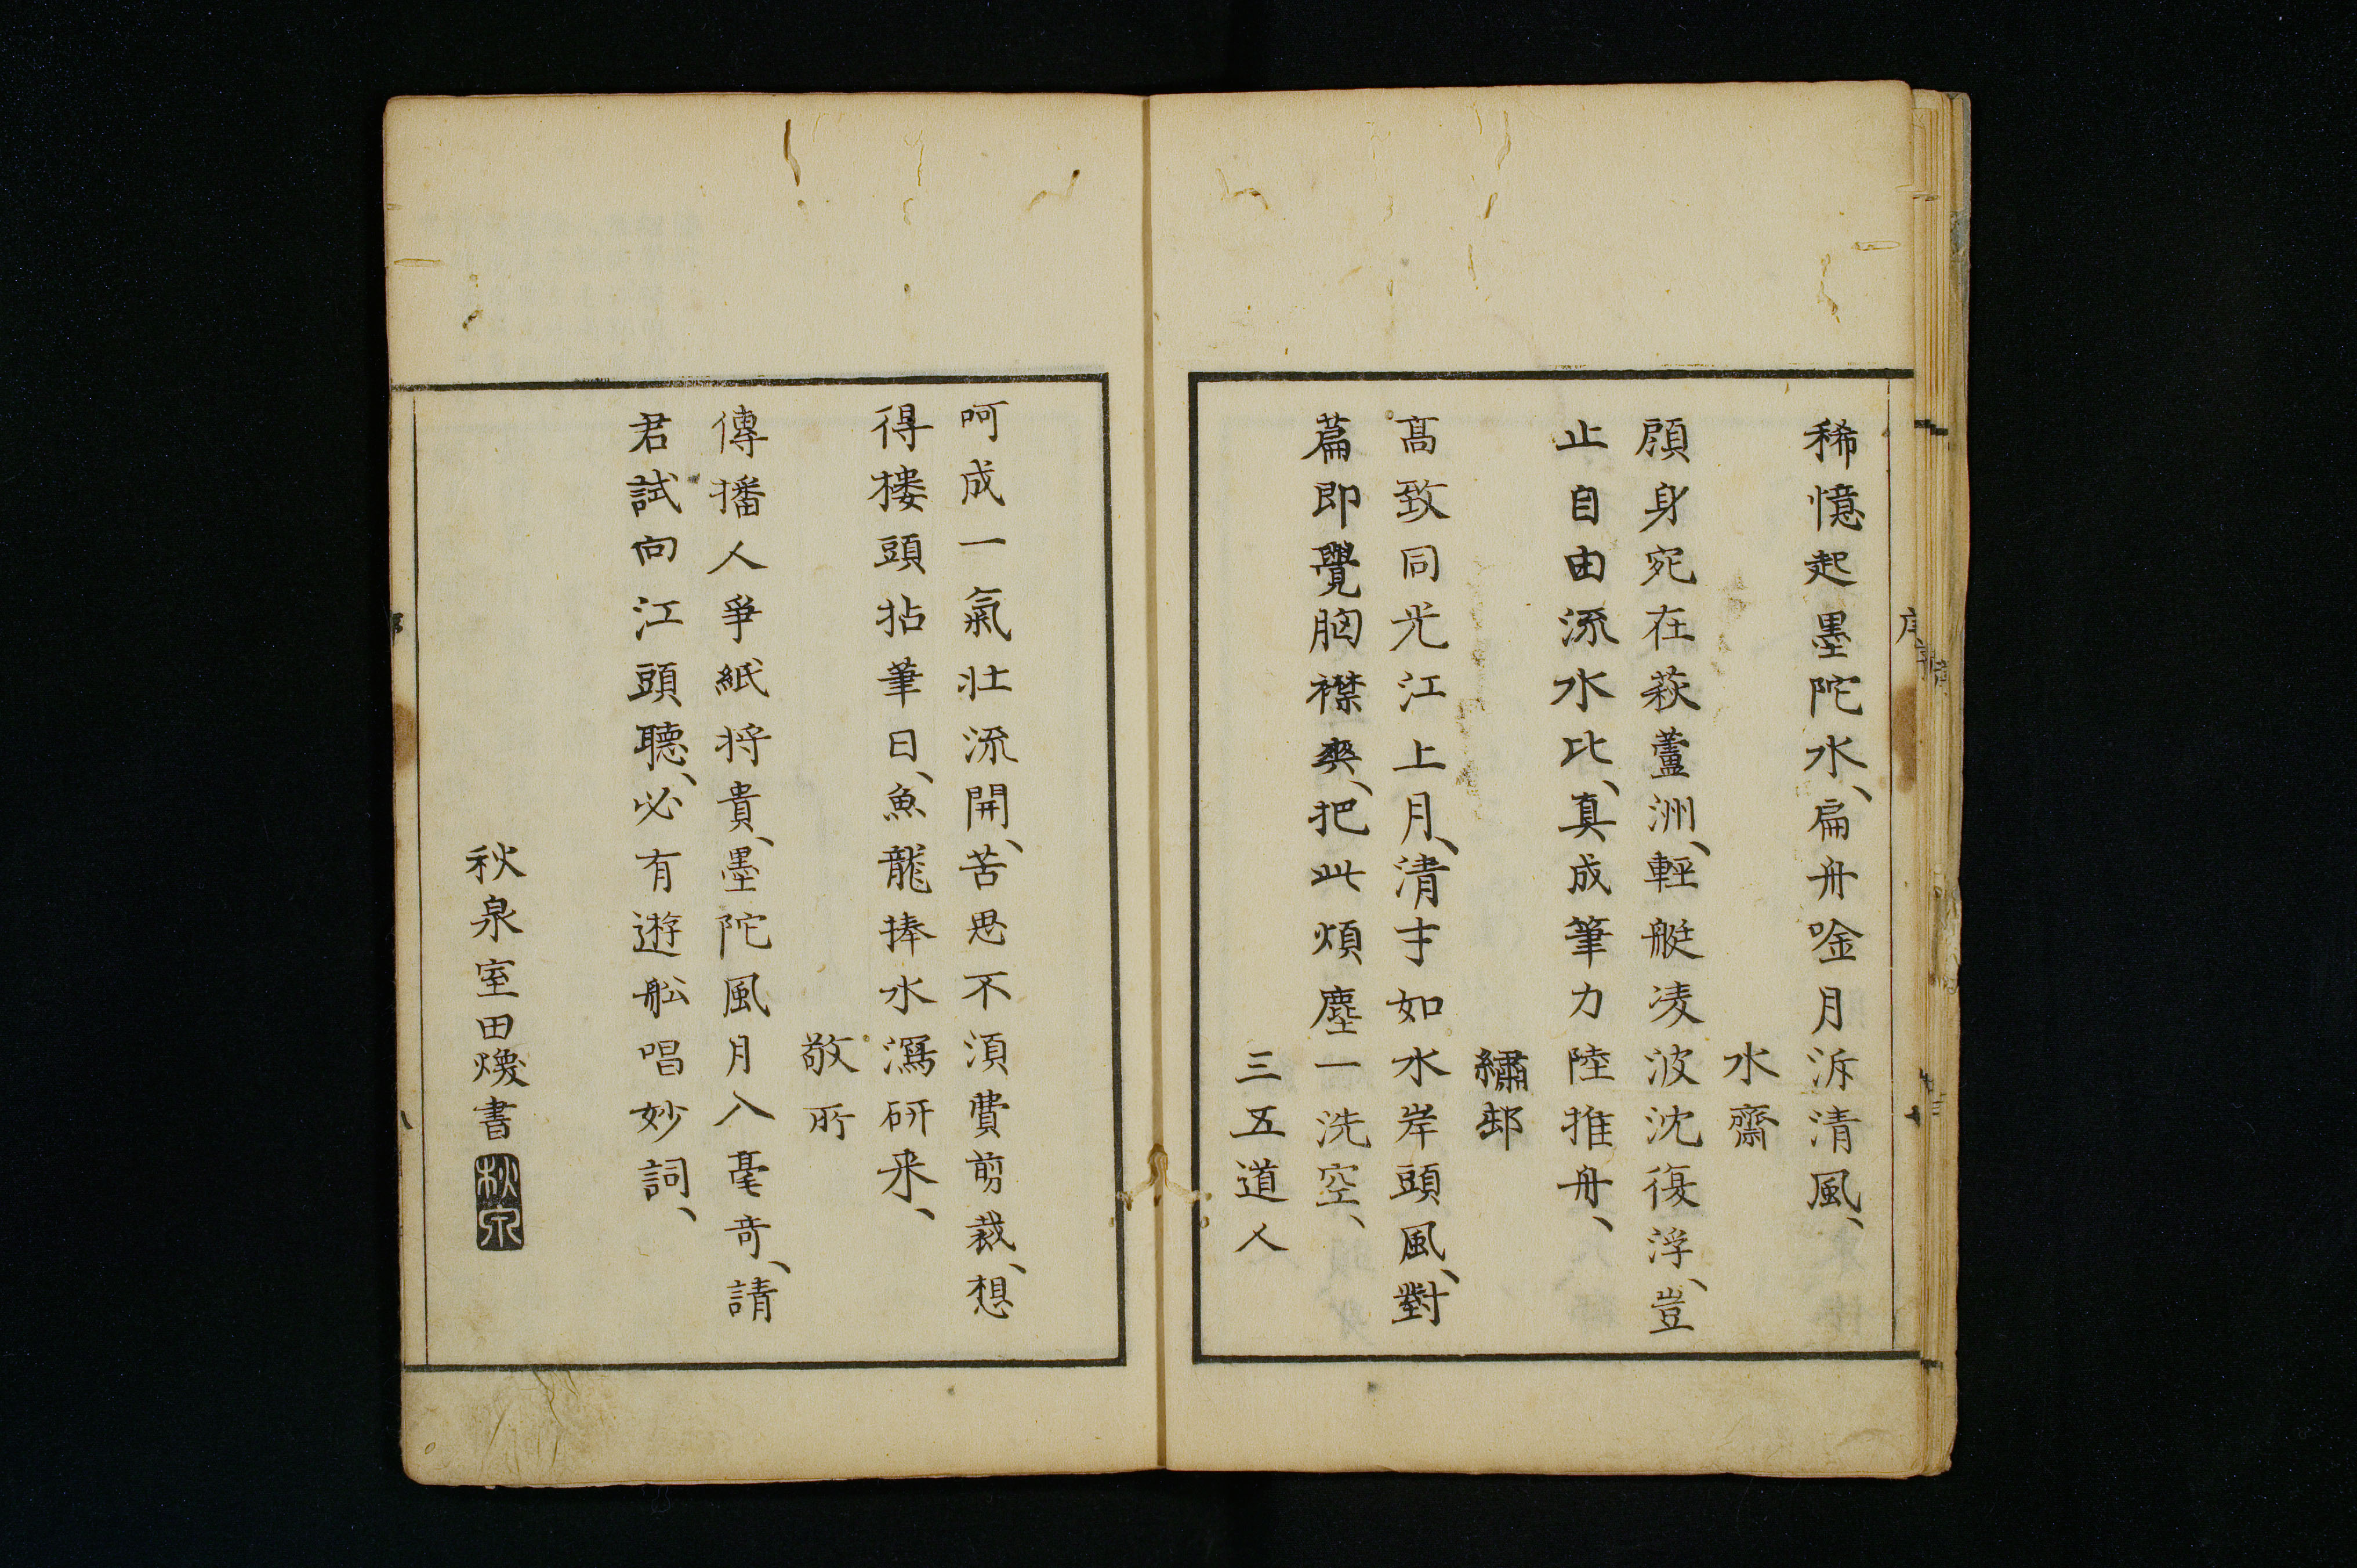 稀憶起墨陀水、扁舟唫月泝清風、
水齋
顔身宛在萩蘆洲、輕艇凌波沈復浮、豈
止自由流水比、真成筆力陸推舟、
繡邨
髙致同光江上月、清才如水岸頭風、對
篇即覺胸襟爽、把此煩塵一洗空、
三五道人
呵成一氣壯流開、苦思不須費剪裁、想
得樓頭拈筆日、魚龍捧水瀉研来、
敬所
傳播人爭紙将貴、墨陀風月入毫奇、請
君試向江頭聽、必有遊舩唱妙詞、
秋泉室田煥書
秋泉
序